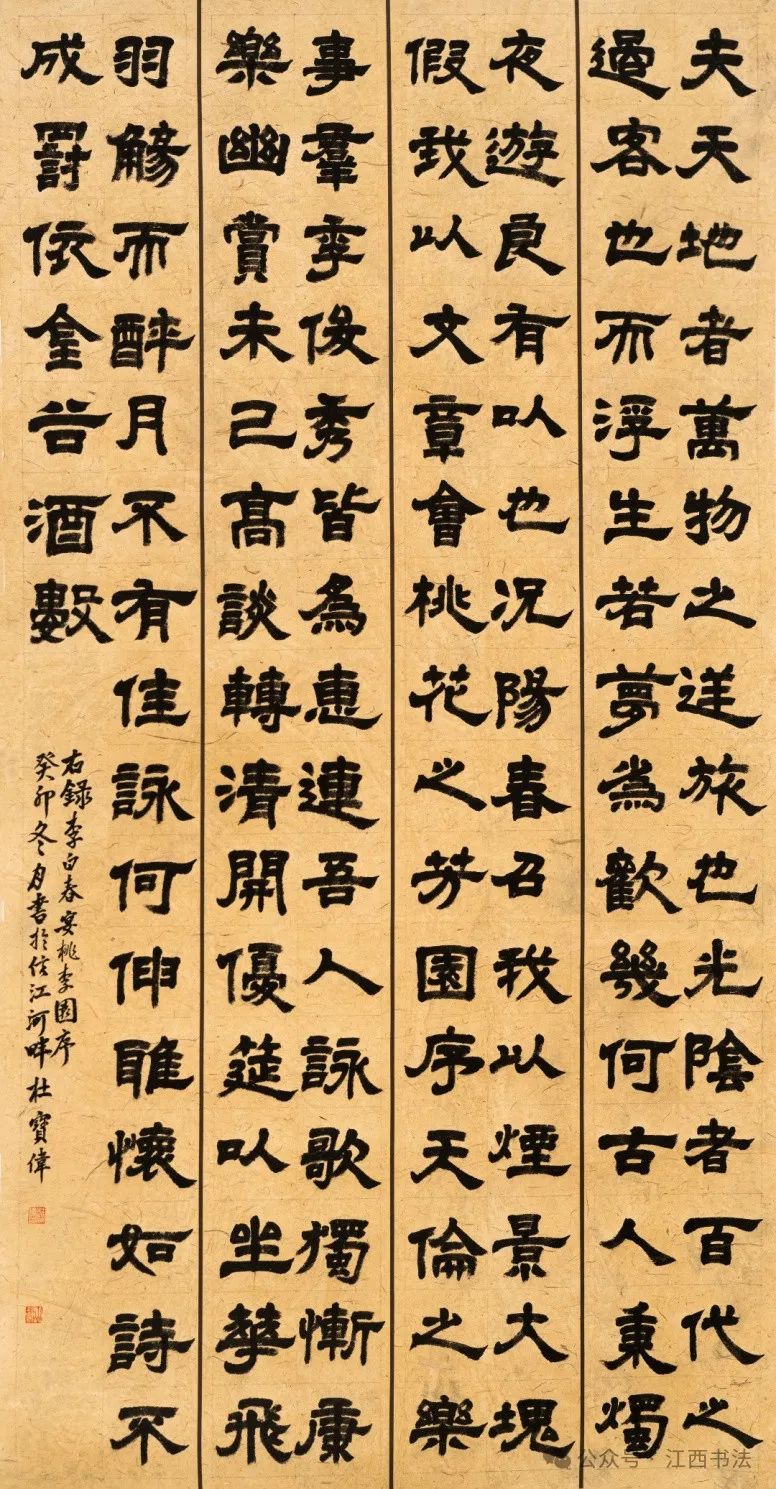 夫天地者萬物之逆旅也光陰者百代之
過客也而浮生若夢為歡幾何古人秉燭
夜遊良有以也况陽春召我以煙景大塊
假我以文章會桃花之芳園序天倫之樂
事羣季俊秀皆為惠連吾人詠歌獨慚康
樂幽賞未已高談轉清開優筵以坐華飛
羽觴而醉月不有佳詠何伸雅懷如詩不
成罰依金谷酒數
右録李白春宴桃李園序
癸卯冬月書於信江河畔杜寶偉
公众号·江西书法